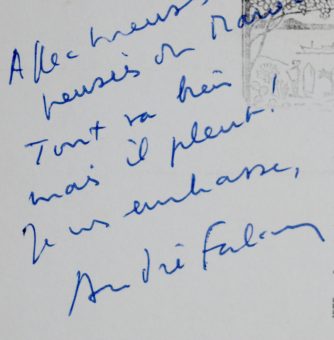 Affectueuses
pensées du Maroc
Tout va bien
mais il pleut!
Je vous embrasse,
André